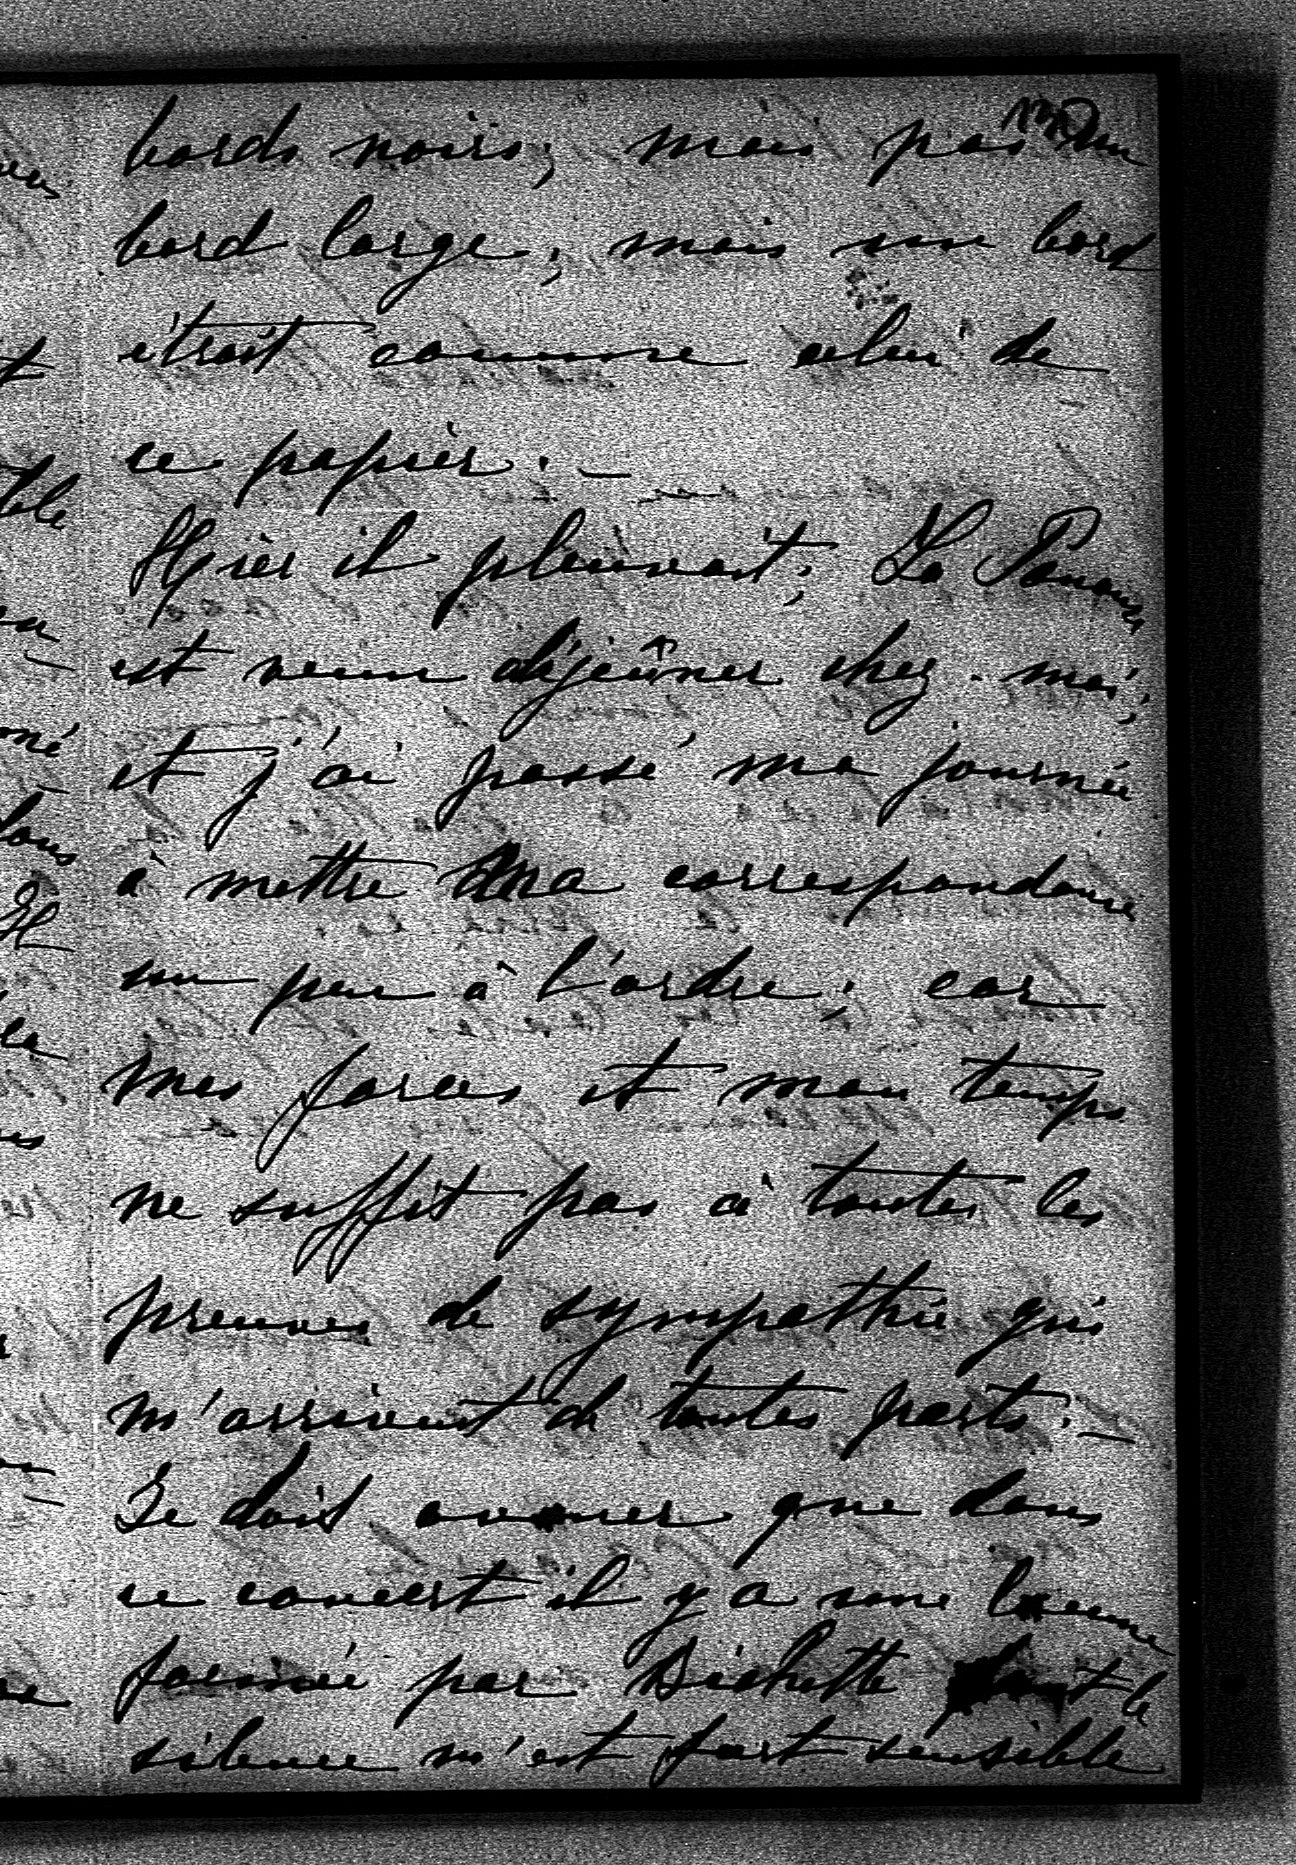 130
bords noirs; mais pas un
bord large; mais un bord
étroit comme celui de
ce papier. —
Hier il pleuvait; La Panouse
est venu déjeûner chez moi;
et j'ai passé ma journée
à mettre ma correspondance
un peu à l'ordre; car
mes forces et mon temps
ne suffit pas à toutes les
preuves de sympathie qui
m'arrivent de toutes parts. —
Je dois avouer que dans
ce concert il y a une lacune
formée par Bichette dont le
silence m'est fort sensible